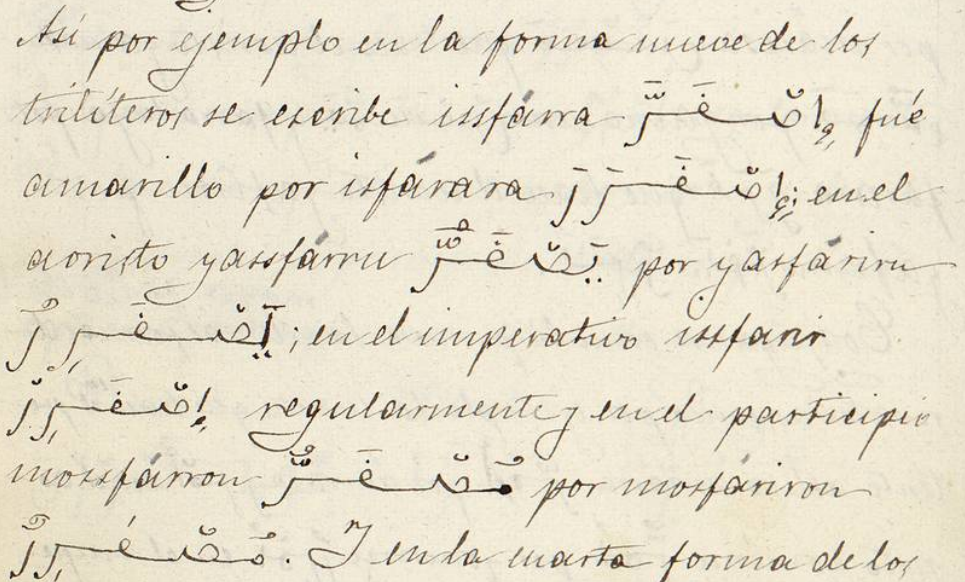 Así por ejemplo en la forma nueve de los
trilíteros se escribe issfárra إِصْفَرَّ fué
amarillo por isfárara إِصْفَرَرَ; en el
aoristo yassfárru يَصْفَرُّ por yasfáriru
يَصْفَرِرُ; en el imperativo issfarir
إِصْفَرِرْ regularmente y en el participio
mossfárron مُصْفَرٌّ por mosfáriron
مُصْفَرِرٌ. Y en la cuarta forma de los